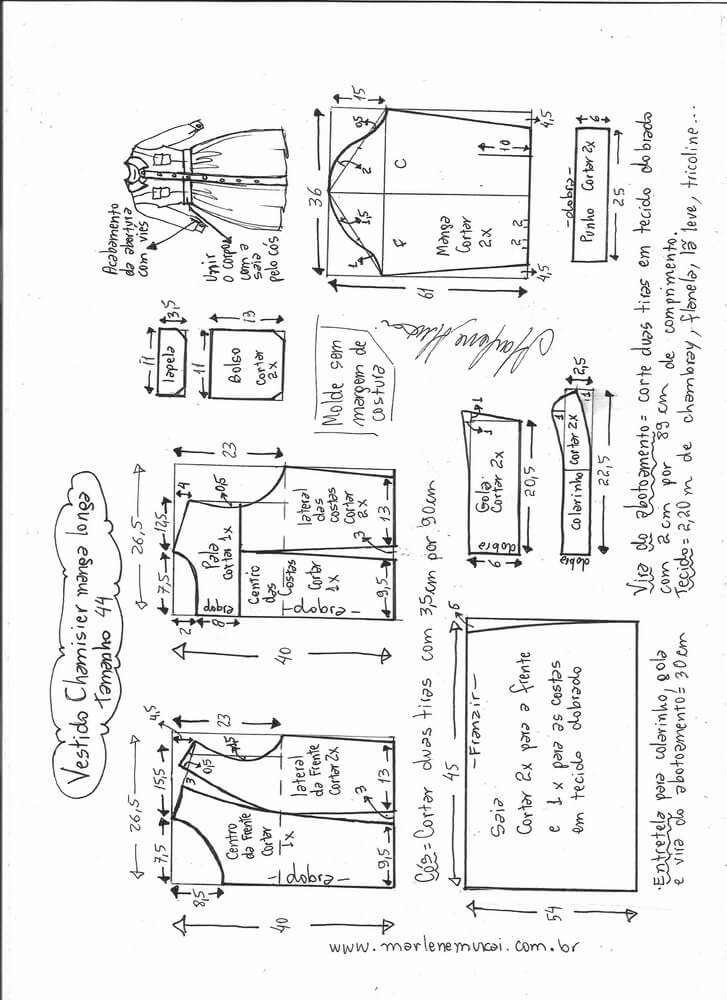 Vestido Chamisier manga longa
tamanho 44
Acabamento
da abertura
com vies
Unir
o corpo
com a
saia
pelo cós
26,5
7,5
15,5
4,5
8,5
3
0,5
1,5
23
40
Centro
da Frente
Cortar
1x
lateral
da Frente
Cortar 2x
-dobra-
9,5
3
13
26,5
7,5
12,5
4
2
8
0,5
23
40
Pala
Cortar 1x
dobra
Centro
das
Costas
Cortar
1x
lateral
das
costas
Cortar
2x
-dobra-
9,5
3
13
11
3,5
lapela
11
13
Bolso
Cortar
2x
Molde sem
margem de
costura
36
15
61
1
1,5
2
0,5
F
C
Manga
Cortar
2x
10
2 2
4,5
4,5
-dobra-
Punho Cortar 2x
6
25
Cós = Cortar duas tiras com 3,5cm por 90cm
45
6
-Franzir-
Saia
Cortar 2x para a frente
e 1x para as costas
em tecido dobrado
54
Gola
Cortar 2x
dobra
9
1
1
20,5
colarinho
cortar 2x
dobra
2,5
1
1
22,5
Entretela para colarinho, gola
e vira do abotoamento = 30cm
Vira do abotoamento = corte duas tiras em tecido dobrado
com 2cm por 89cm de comprimento.
Tecido = 2,20m de chambray, flanela, lã leve, tricoline...
www.marlenemukai.com.br